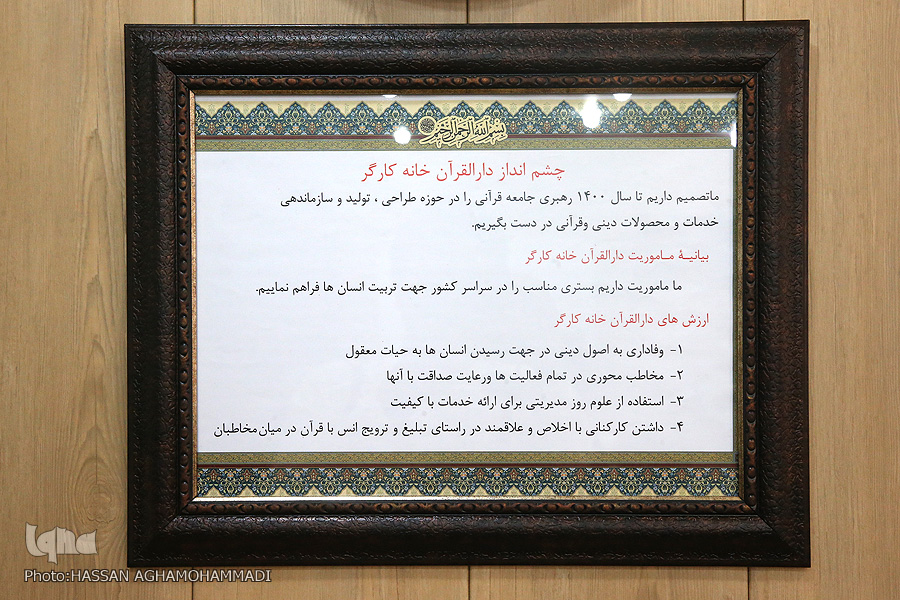 بسم الله الرحمن الرحیم
چشم انداز دارالقرآن خانه کارگر
ماتصمیم داریم تا سال ۱۴۰۰ رهبری جامعه قرآنی را در حوزه طراحی ، تولید و سازماندهی
خدمات و محصولات دینی وقرآنی در دست بگیریم.
بیانیـۀ مـاموریت دارالقرآن خانه کارگر
ما ماموریت داریم بستری مناسب را در سراسر کشور جهت تربیت انسان ها فراهم نماییم.
ارزش های دارالقرآن خانه کارگر
۱- وفاداری به اصول دینی در جهت رسیدن انسان ها به حیات معقول
۲- مخاطب محوری در تمام فعالیت ها ورعایت صداقت با آنها
۳- استفاده از علوم روز مدیریتی برای ارائه خدمات با کیفیت
۴- داشتن کارکنانی با اخلاص و علاقمند در راستای تبلیغ و ترویج انس با قرآن در میان مخاطبان
iqna
Photo:HASSAN AGHAMOHAMMADI